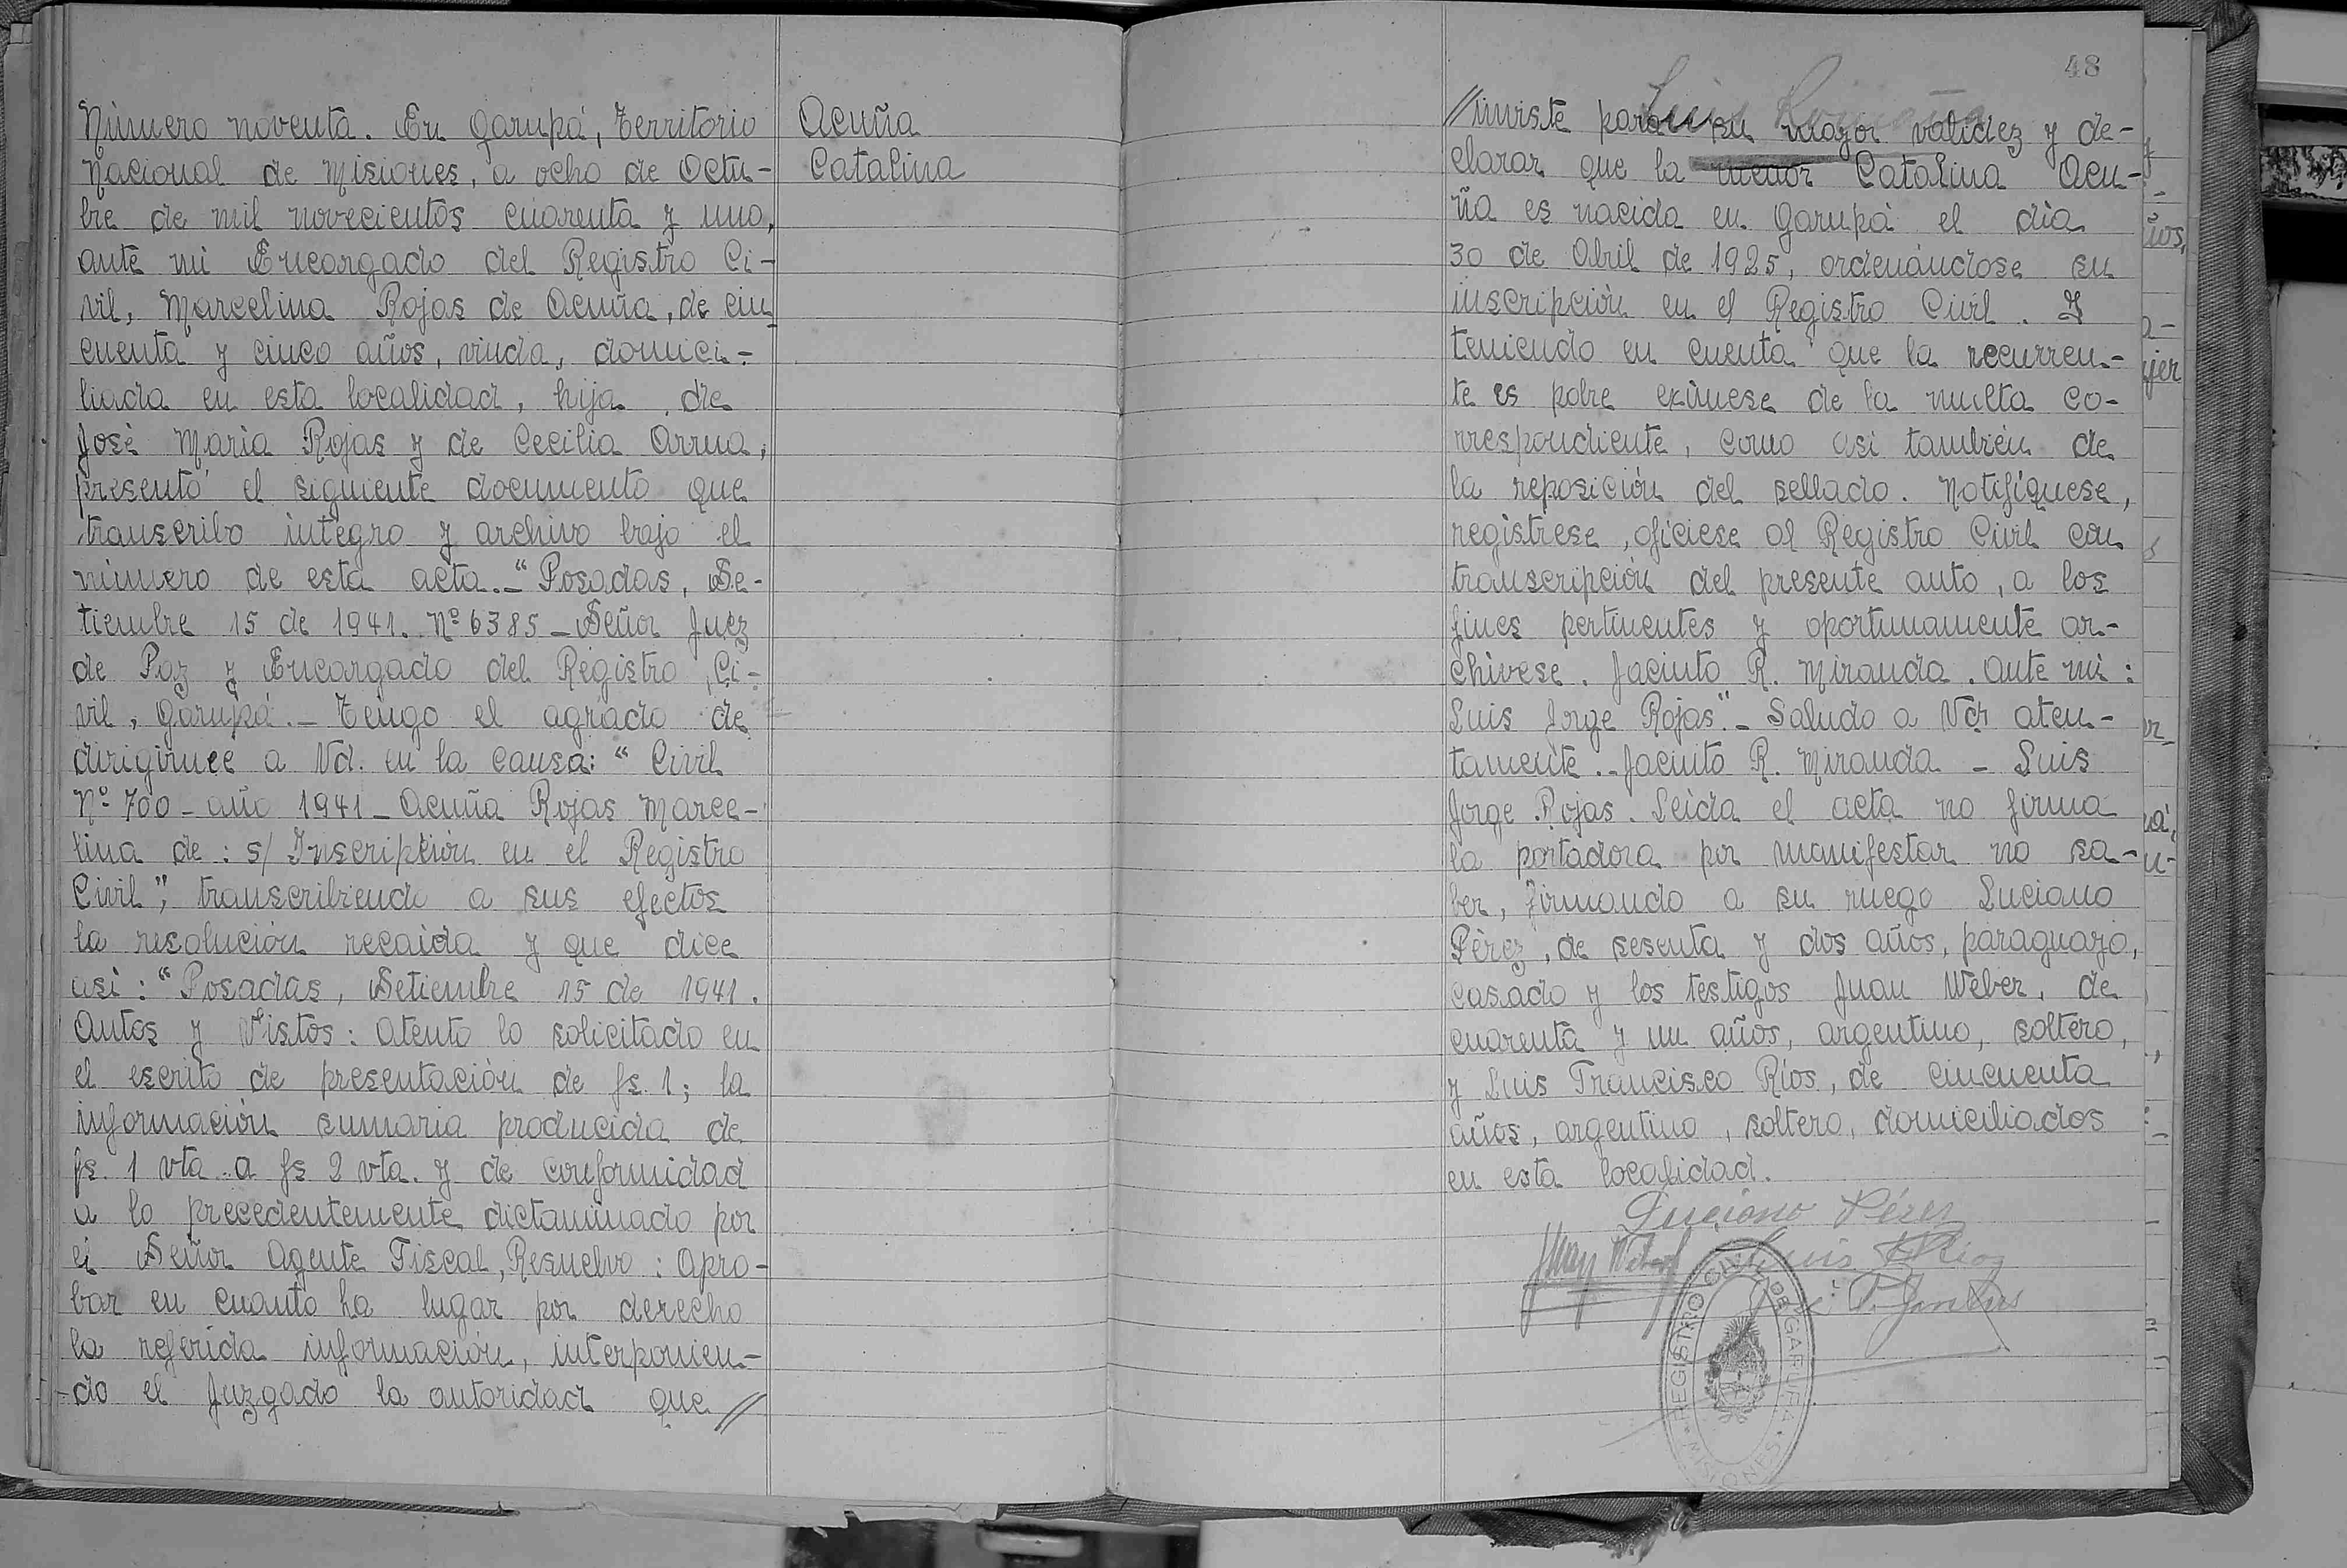 Número noventa. En Garupá, Territorio
Nacional de Misiones, a ocho de Octu-
bre de mil novecientos cuarenta y uno,
ante mi Encargado del Registro Ci-
vil, Marcelina Rojas de Acuña, de cin
cuenta y cinco años, viuda, domici-
liada en esta localidad, hija de
José María Rojas y de Cecilia Arrua,
presentó el siguiente documento que
transcribo integro y archivo bajo el
número de esta acta.- "Posadas, Se-
tiembre 15 de 1941. Nº 6385 - Señor Juez
de Paz y Encargado del Registro Ci-
vil, Garupá.- Tengo el agrado de
dirigirmee a Vd. en la causa: "Civil
Nº 700 - año 1941 - Acuña Rojas Marce-
lina de: s/ Inscripción en el Registro
Civil", transcribiendo a sus efectos
la resolución recaida y que dice
asi: "Posadas, Setiembre 15 de 1941.
Autos y Vistos: Atento lo solicitado en
el escrito de presentación de fs. 1; la
información sumaria producida de
fs. 1 vta. a fs 2 vta. y de conformidad
a lo precedentemente dictaminado por
el Señor Agente Fiscal, Resuelvo: Apro-
bar en cuanto ha lugar por derecho
la referida información, interponien-
do el Juzgado la autoridad que //
Acuña
Catalina
48
// inviste para su mayor validez y de-
clarar que la menor Catalina Acu-
ña es nacida en Garupá el día
30 de Abril de 1925, ordenándose su
inscripción en el Registro Civil. Y
teniendo en cuenta que la recurren-
te es pobre exímese de la multa co-
rrespondiente, como asi también de
la reposición del sellado. Notifíquese,
regístrese, ofíciese al Registro Civil con
transcripción del presente auto, a los
fines pertinentes y oportunamente ar-
chívese. Jacinto R. Miranda. Ante mi:
Luis Jorge Rojas".- Saludo a Vd. aten-
tamente.- Jacinto R. Miranda - Luis
Jorge Rojas. Leida el acta no firma
la portadora por manifestar no sa-
ber, firmando a su ruego Luciano
Pérez, de sesenta y dos años, paraguayo,
casado y los testigos Juan Weber, de
cuarenta y un años, argentino, soltero,
y Luis Francisco Ríos, de cincuenta
años, argentino, soltero, domiciliados
en esta localidad.
Luciano Pérez
Juan Weber Luis F Rios
REGISTRO CIVIL DE GARUPA
MISIONES